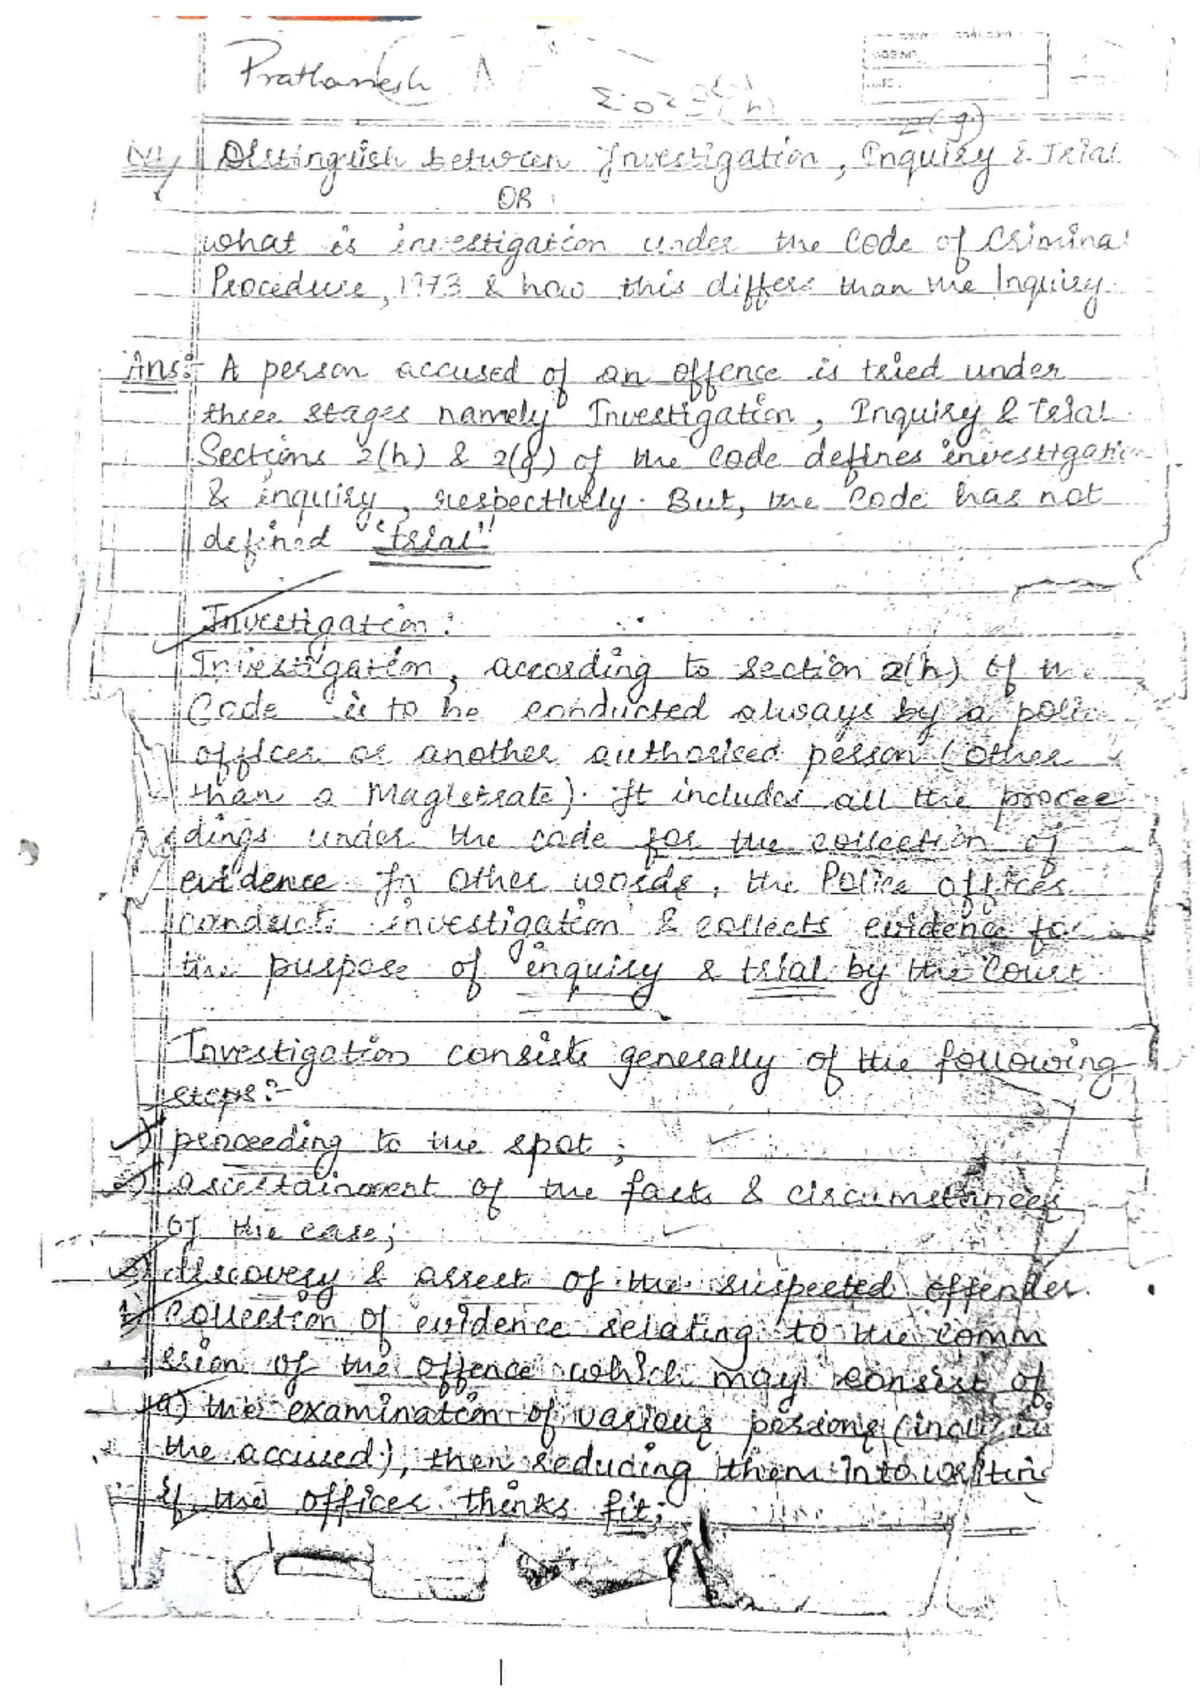 Prathamesh
2(h)
2(g)
Distinguish between Investigation, Inquiry & Trial
OR
what is investigation under the Code of Criminal
Procedure, 1973 & how this differs than the Inquiry.
Ans:- A person accused of an offence is tried under
three stages namely Investigation, Inquiry & Trial.
Sections 2(h) & 2(g) of the Code defines investigation
& inquiry, respectively. But, the Code has not
defined "trial"
Investigation:
Investigation, according to section 2(h) of the
Code is to be conducted always by a police
officer or another authorised person (other
than a Magistrate). It includes all the procee
dings under the code for the collection of
evidence. In other words, the Police officer
conducts investigation & collects evidence for
the purpose of inquiry & trial by the Court
Investigation consists generally of the following
steps:-
1) proceeding to the spot;
2) ascertainment of the facts & circumstances
of the case;
3) discovery & arrest of the suspected offender.
4) Collection of evidence relating to the comm
ssion of the offence which may consist of
a) the examination of various persons (including
the accused), then reducing them into writing
if the officer thinks fit;